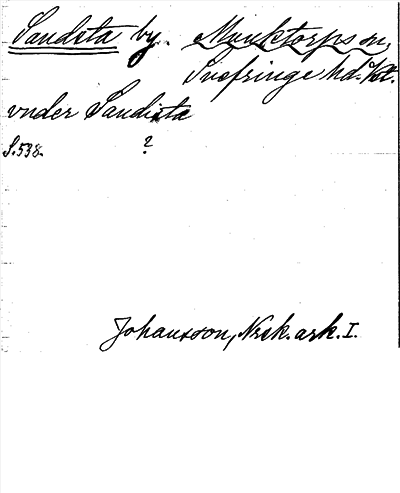 Sandsta by. Munktorps sn,
Snefringe hd. o/kt.
vnder Sandista
S. 538. ?
Johansson, Nock. ark. I.